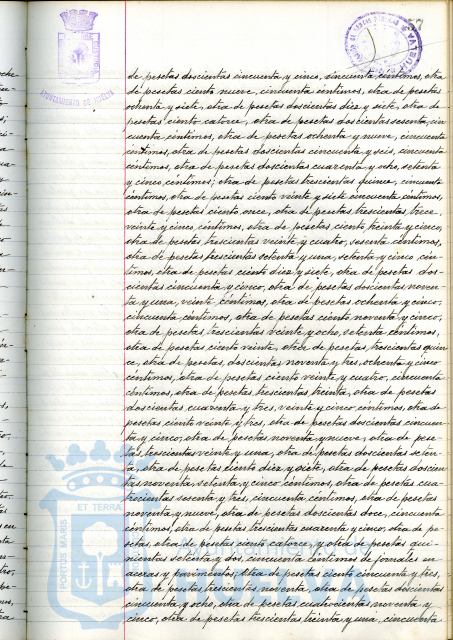 AYUNTAMIENTO DE HUELVA
de pesetas doscientas cincuenta y cinco, cincuenta céntimos, otra
de pesetas ciento nueve, cincuenta céntimos, otra de pesetas
ochenta y siete, otra de pesetas doscientas diez y siete, otra de
pesetas ciento catorce, otra de pesetas doscientas sesenta, cin-
cuenta céntimos, otra de pesetas ochenta y nueve, cincuenta
céntimos, otra de pesetas doscientas cincuenta y seis, cincuenta
céntimos, otra de pesetas doscientas cuarenta y ocho, setenta
y cinco, céntimos; otra de pesetas trescientas quince, cincuenta
céntimos, otra de pesetas ciento veinte y siete cincuenta céntimos,
otra de pesetas ciento once, otra de pesetas trescientas trece,
veinte y cinco, céntimos, otra de pesetas, ciento treinta y cinco,
otra de pesetas trescientas veinte y cuatro, sesenta céntimos,
otra de pesetas trescientas setenta y una, setenta y cinco cén-
timos, otra de pesetas ciento diez y siete, otra de pesetas dos-
cientas cincuenta y cinco, otra de pesetas doscientas noven-
ta y una, veinte céntimos, otra de pesetas ochenta y cinco,
cincuenta céntimos, otra de pesetas ciento noventa y cinco,
otra de pesetas, trescientas veinte y ocho, setenta céntimos,
otra de pesetas ciento veinte, otra de pesetas trescientas quin-
ce, otra de pesetas, doscientas noventa y tres, ochenta y cinco
céntimos, otra de pesetas ciento veinte y cuatro, cincuenta
céntimos, otra de pesetas trescientas treinta, otra de pesetas
doscientas cuarenta y tres, veinte y cinco céntimos, otra de
pesetas, ciento veinte y tres, otra de pesetas doscientas cincuen-
ta y cinco, otra de pesetas noventa y nueve, otra de pese-
tas, trescientas veinte y una, otra de pesetas doscientas seten-
ta, otra de pesetas ciento diez y siete, otra de pesetas doscien-
tas noventa, setenta y cinco céntimos, otra de pesetas cua-
trocientas sesenta y tres, cincuenta céntimos, otra de pesetas
noventa y nueve, otra de pesetas doscientas doce, cincuenta
céntimos, otra de pesetas trescientas cuarenta y cinco, otra de pe-
setas, otra de pesetas ciento catorce, y otra de pesetas qui-
nientas setenta y dos, cincuenta céntimos de jornales en
aceras y pavimentos; otra de pesetas ciento cincuenta y tres,
otra de pesetas trescientas noventa, otra de pesetas doscientas
cincuenta, y ocho, otra de pesetas cuatrocientas noventa y
cinco, otra de pesetas trescientas treinta y una, cincuenta
PORTUS MARIS
ET TERRA
Ayuntamiento de